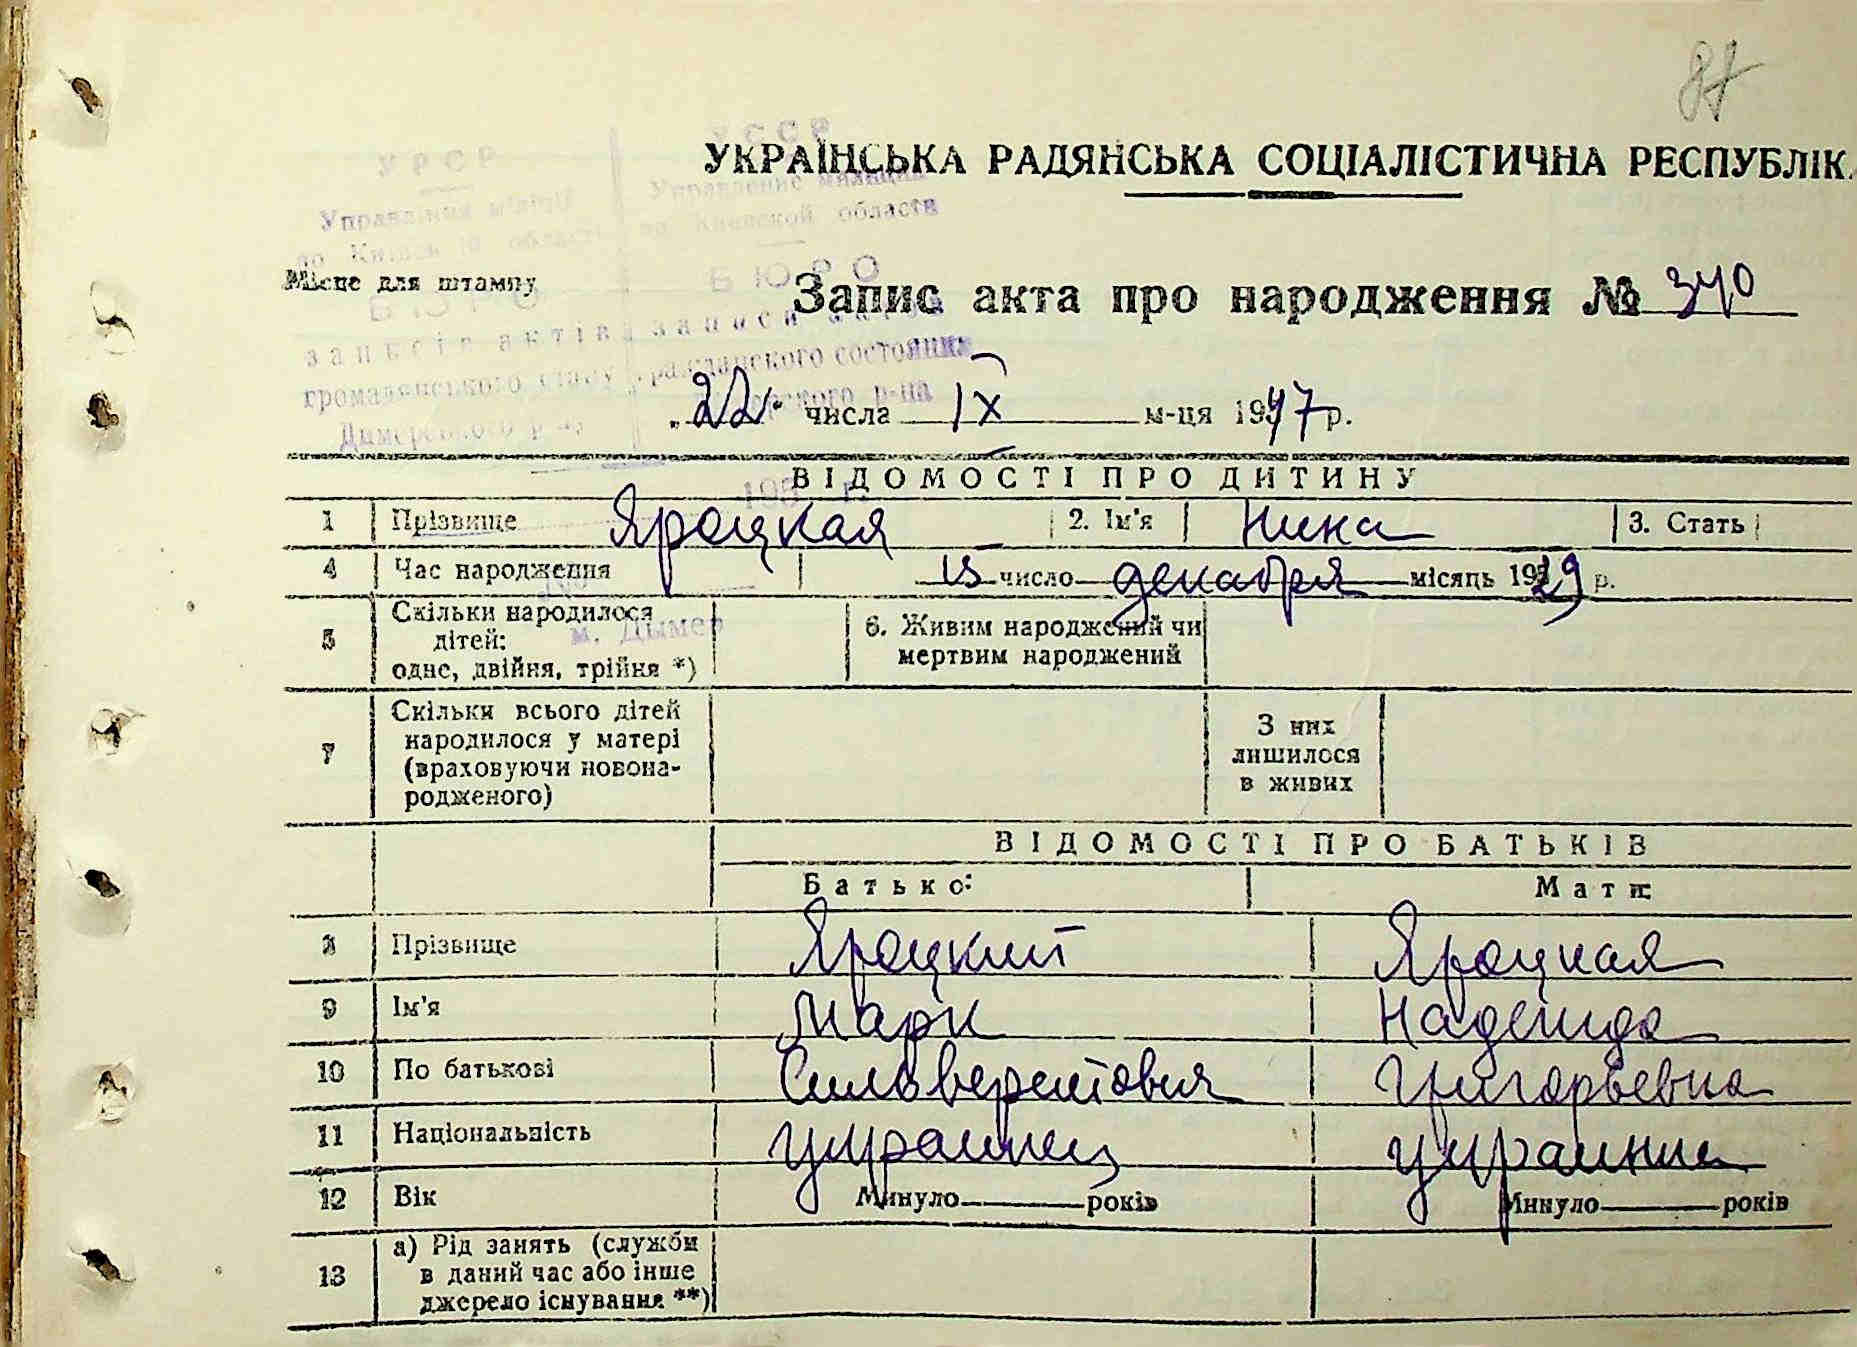 87
УКРАЇНСЬКА РАДЯНСЬКА СОЦІАЛІСТИЧНА РЕСПУБЛІК
УРСР УССР
Управління міліції Управление милиции
по Київській області по Киевской области
Місце для штампу
БЮРО БЮРО
Запис акта про народження № 340
записів актів записи актов
громадянського стану гражданского состояния
Димерського р-ну Дымерского р-на
„22" числа IX м-ця 1947 р.
195 г.
ВІДОМОСТІ ПРО ДИТИНУ
1 Прізвище Яроцкая 2. Ім'я Нина 3. Стать
4 Час народження 15 число декабря місяць 1929 р.
м. Дымер
5 Скільки народилося
дітей:
одне, двійня, трійня *)
6. Живим народжений чи
мертвим народжений
7 Скільки всього дітей
народилося у матері
(враховуючи новона-
родженого)
З них
лишилося
в живих
ВІДОМОСТІ ПРО БАТЬКІВ
Батько: Мати:
8 Прізвище Яроцкий Яроцкая
9 Ім'я Марк Надежда
10 По батькові Сильверстович Григорьевна
11 Національність украинец украинка
12 Вік Минуло років Минуло років
13 а) Рід занять (служби
в даний час або інше
джерело існування **)